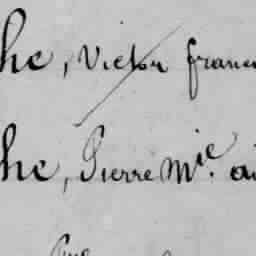 he, Victor franc
he, Pierre Mie. ai